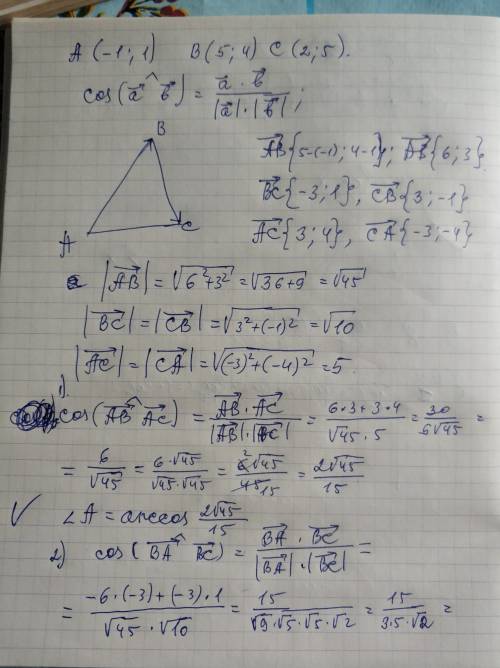 A (-1; 1) B(5; 4) C (2; 5).
cos(a⃗ ^ b⃗) = a⃗ · b⃗ / |a⃗| · |b⃗| ;
B
A
C
AB⃗{5-(-1); 4-1}; AB⃗{6; 3}
BC⃗{-3; 1}, CB⃗{3; -1}
AC⃗{3; 4}, CA⃗{-3; -4}
|AB⃗| = √(6²+3²) = √(36+9) = √45
|BC⃗| = |CB⃗| = √(3²+(-1)²) = √10
|AC⃗| = |CA⃗| = √((-3)²+(-4)²) = 5.
1) cos(AB⃗ ^ AC⃗) = AB⃗ · AC⃗ / |AB⃗| · |AC⃗| = 6·3+3·4 / √45 · 5 = 30 / 6√45 =
= 6 / √45 = 6·√45 / √45·√45 = 6 2 √45 / 45 15 = 2√45 / 15
∠A = arccos 2√45 / 15
2) cos(BA⃗ ^ BC⃗) = BA⃗ · BC⃗ / |BA⃗| · |BC⃗| =
= -6·(-3)+(-3)·1 / √45 · √10 = 15 / √9·√5·√5·√2 = 15 / 3·5·√2 =